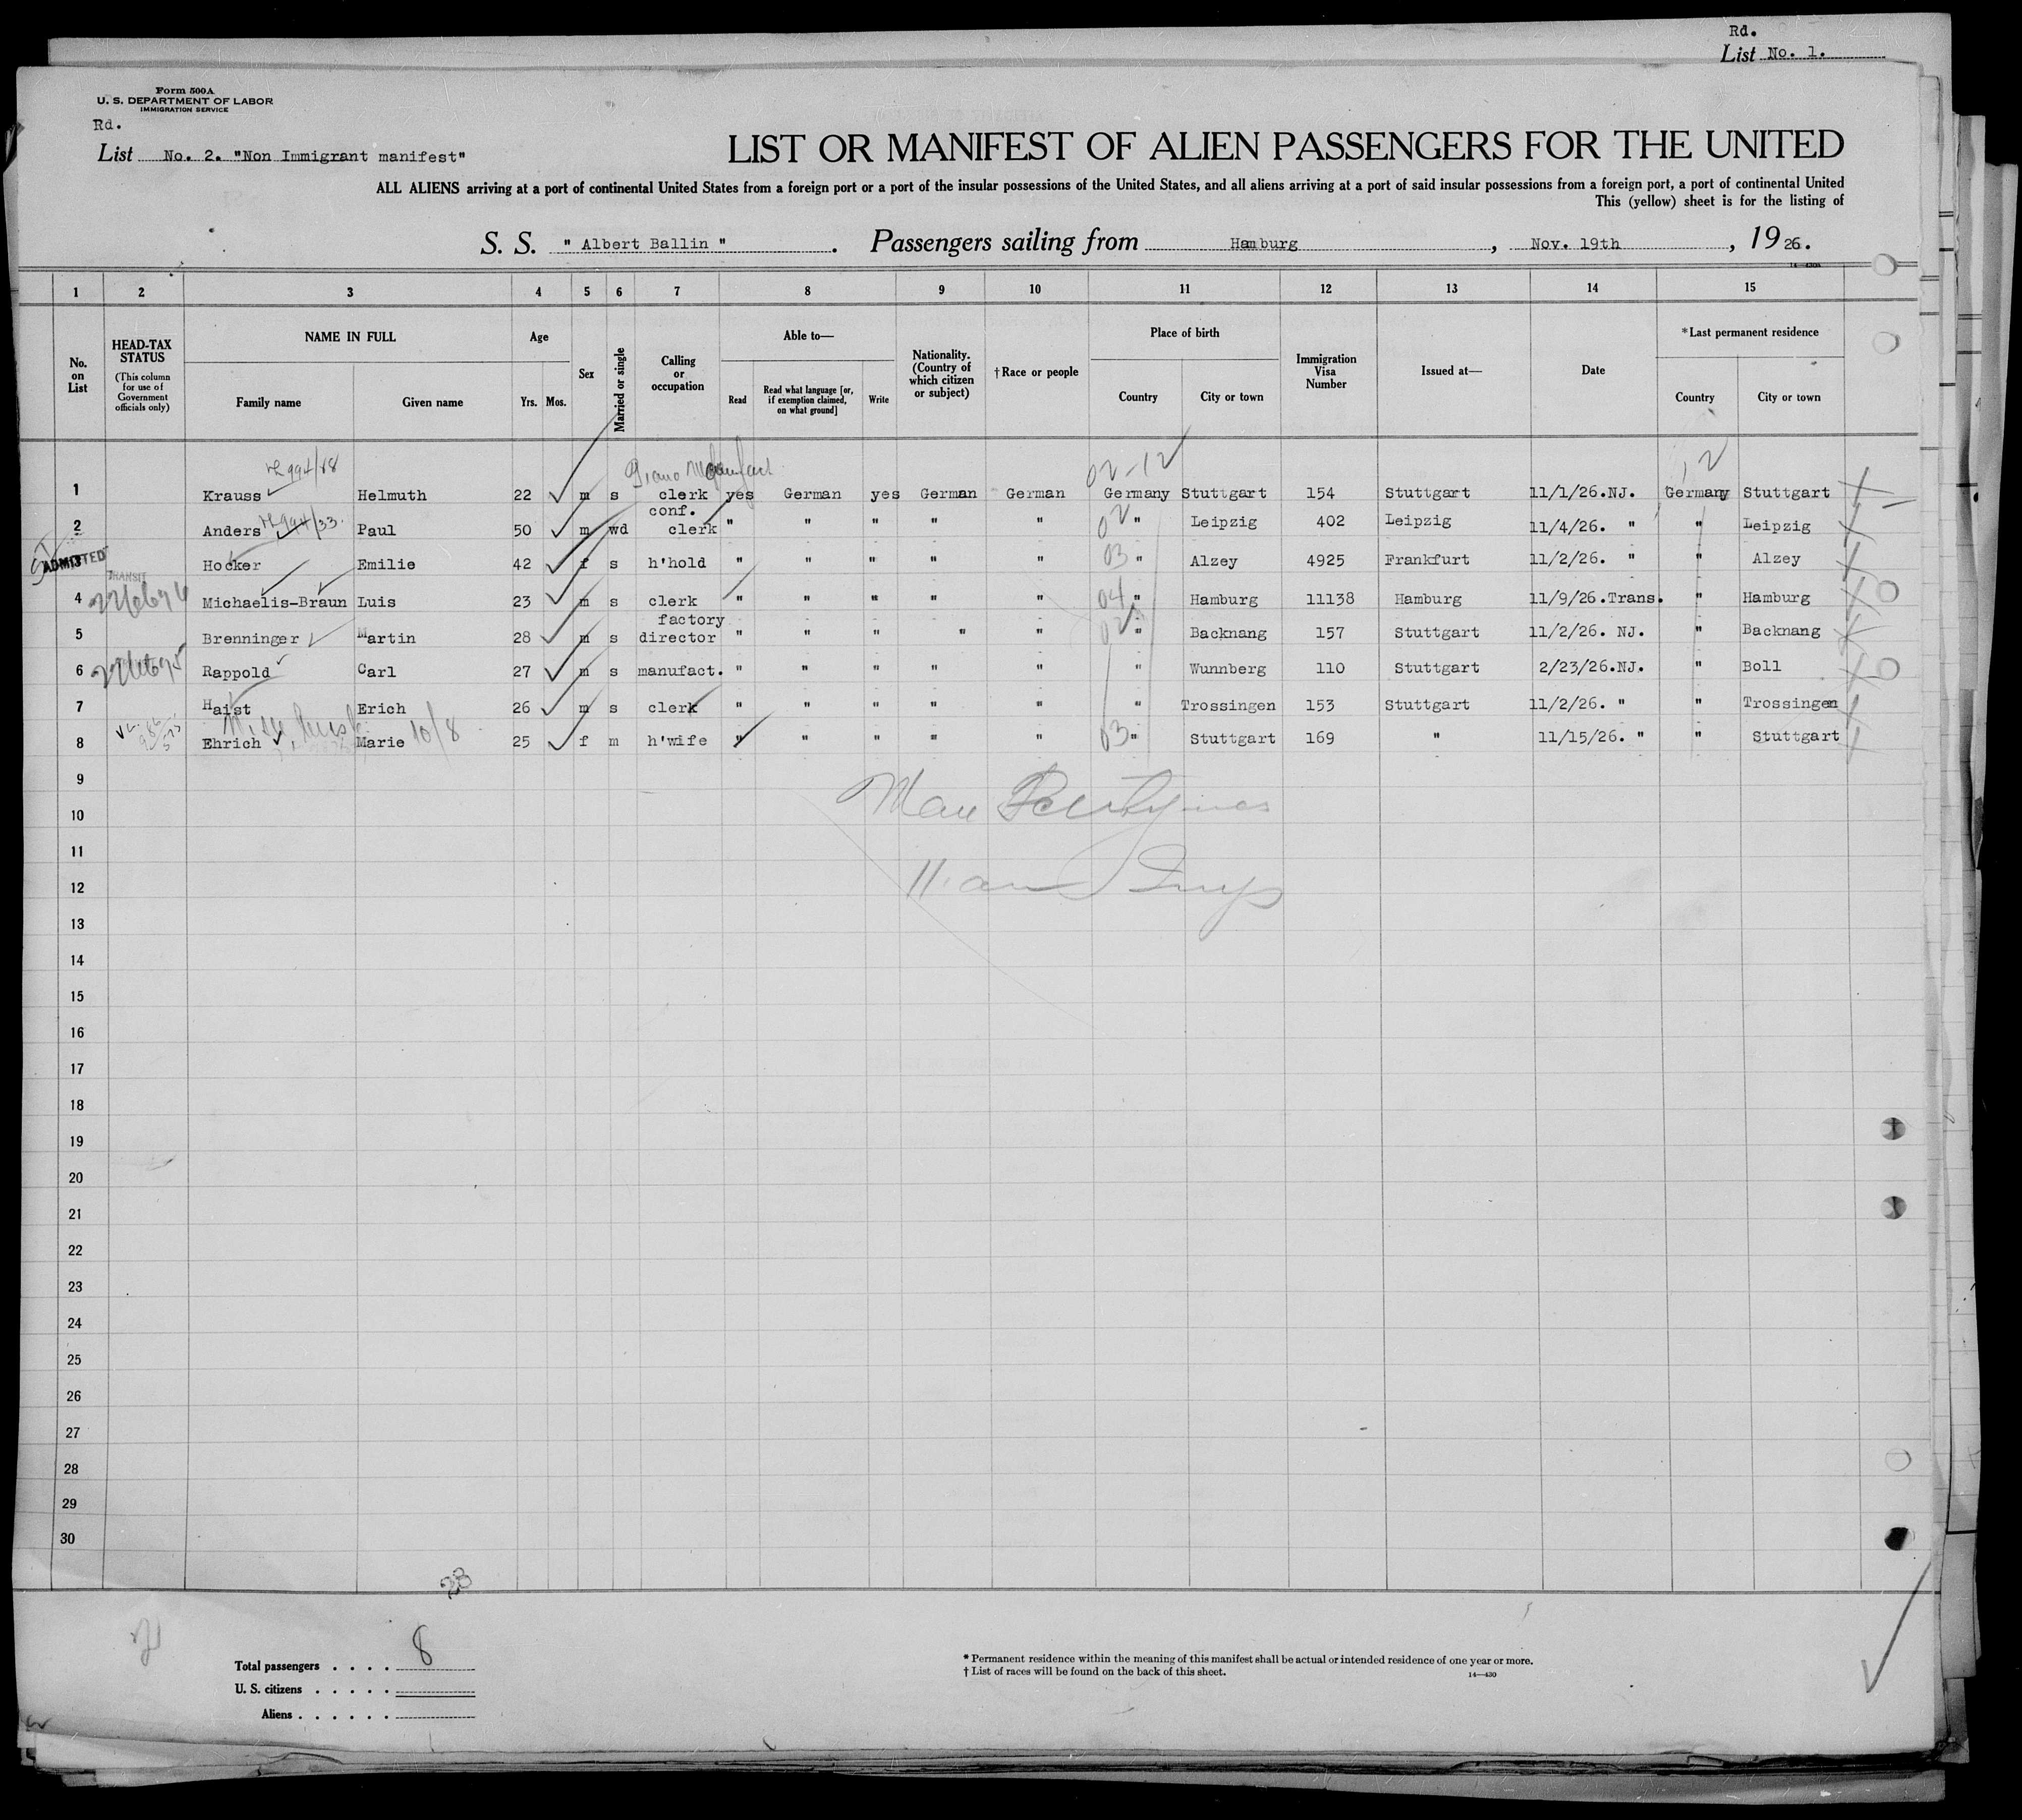 Rd.
List No. 1.
Form 500A
U. S. DEPARTMENT OF LABOR
IMMIGRATION SERVICE
Rd.
List No. 2. "Non Immigrant manifest"
LIST OR MANIFEST OF ALIEN PASSENGERS FOR THE UNITED
ALL ALIENS arriving at a port of continental United States from a foreign port or a port of the insular possessions of the United States, and all aliens arriving at a port of said insular possessions from a foreign port, a port of continental United
This (yellow) sheet is for the listing of
S. S. " Albert Ballin ". Passengers sailing from Hamburg, Nov. 19th, 1926.
14-430a
1 2 3 4 5 6 7 8 9 10 11 12 13 14 15
No. on List
HEAD-TAX STATUS (This column for use of Government officials only)
NAME IN FULL
Family name Given name
Age
Yrs. Mos.
Sex
Married or single
Calling or occupation
Able to—
Read Read what language [or, if exemption claimed, on what ground] Write
Nationality. (Country of which citizen or subject)
†Race or people
Place of birth
Country City or town
Immigration Visa Number
Issued at—
Date
*Last permanent residence
Country City or town
994/18
Piano Manufact
02-12
12
1 Krauss Helmuth 22 m s clerk yes German yes German German Germany Stuttgart 154 Stuttgart 11/1/26.NJ. Germany Stuttgart
994/33.
conf.
2 Anders Paul 50 m wd clerk " " " " " 02 " Leipzig 402 Leipzig 11/4/26. " " Leipzig
ADMITTED
3 Hocker Emilie 42 f s h'hold " " " " " 03 " Alzey 4925 Frankfurt 11/2/26. " " Alzey
TRANSIT
4 Michaelis-Braun Luis 23 m s clerk " " " " " 04 " Hamburg 11138 Hamburg 11/9/26.Trans. " Hamburg
factory
5 Brenninger Martin 28 m s director " " " " " 02 " Backnang 157 Stuttgart 11/2/26. NJ. " Backnang
6 Rappold Carl 27 m s manufact. " " " " " " Wunnberg 110 Stuttgart 2/23/26.NJ. " Boll
7 Haist Erich 26 m s clerk " " " " " " Trossingen 153 Stuttgart 11/2/26. " " Trossingen
10/8
8 Ehrich Marie 25 f m h'wife " " " " " 03 " Stuttgart 169 " 11/15/26. " " Stuttgart
9
10
11
12
13
14
15
16
17
18
19
20
21
22
23
24
25
26
27
28
29
30
Total passengers . . . . 8
U. S. citizens . . . . .
Aliens . . . . . .
* Permanent residence within the meaning of this manifest shall be actual or intended residence of one year or more.
† List of races will be found on the back of this sheet.
14-430